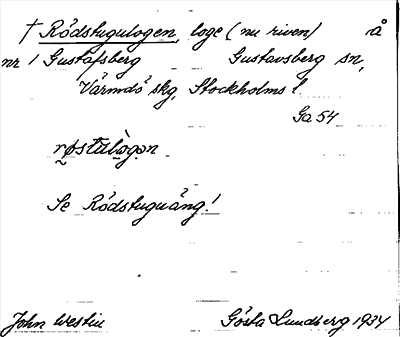 † Rödstugulogen, loge (nu riven) å
nr 1 Gustafsberg Gustavsberg sn,
Värmdö skg, Stockholms l.
Ga 54
røstulògon
Se Rödstuguäng!
John Westin Gösta Lundberg 1934